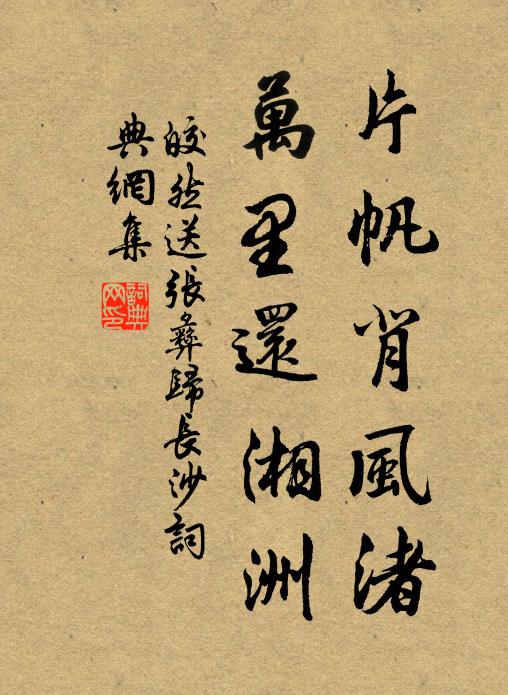 片帆背風渚
萬里還湘洲
皎然送張彝歸長沙詞
典網集
詞典
网印